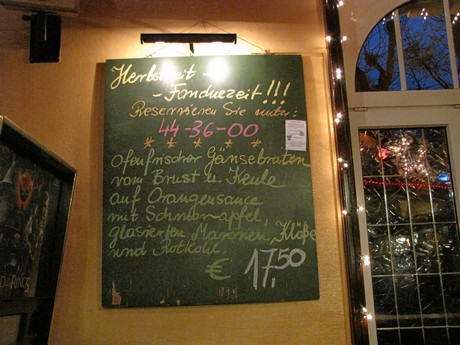 Herbstzeit -
- Fonduezeit!!!
Reservieren Sie unter:
44-36-00
* * * * * *
Ofenfrischer Gänsebraten
vom Brust u. Keule
auf Orangensauce
mit Schmorapfel,
glasierten Maronen, Klöße
und Rotkohl.
€ 17,50